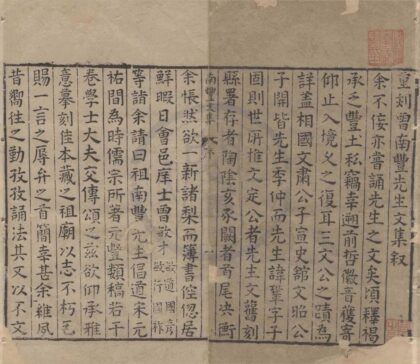 重刻曾南豐先生文集叙
余不佞亦嘗誦先生之文矣頃釋褐
承乏豐土私竊幸遡前哲徽音獲寄
仰止入境又復耳三文公之蹟為
詳盖相國文肅公子宣史舘文昭公
子開皆先生季仲而先生諱鞏字子
固則世所推文定公者先生文舊刻
縣署存者陶陰亥豕闕者首尾决斷
南豐文集 序
余悵然欲一新諸梨而簿書倥傯居
鮮暇日會邑庠士曾敏才
敏道國彥
敏行國祚
等請余請曰祖南豐先生倡道宋元
祐間為時儒宗所著元豐類稿若干
卷學士大夫交傳頌之兹欲仰承雅
意摹刻佳本藏之祖廟以志不朽乞
賜一言之辱弁之首簡幸甚余維夙
昔嚮往之勤孜孜誦法其又以不文